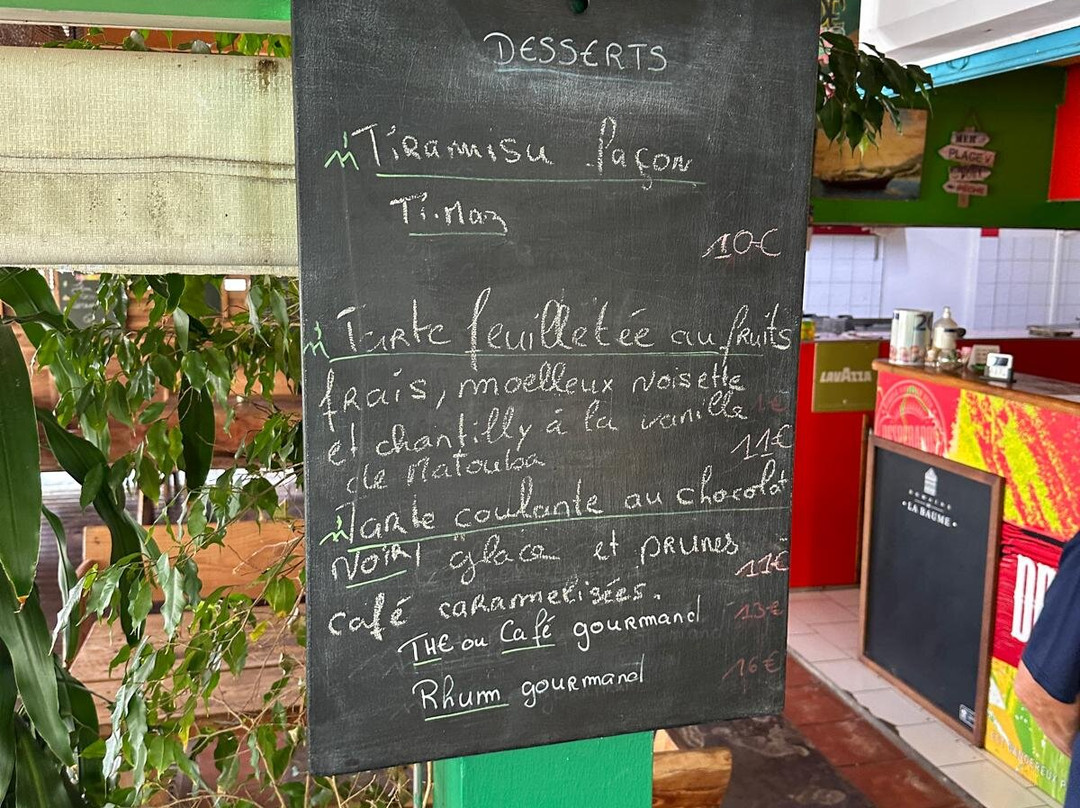 DESSERTS
Tiramisu façon
Ti.Maz
10€
Tarte feuilletée au fruits
frais, moelleux noisette
et chantilly à la vanille
de Matouba
11€
Tarte coulante au chocolat
Noir, glace et prunes
11€
café caramelisées.
THE ou Café gourmand 13€
Rhum gourmand 16€
LAVAZZA
PLAGE
LA BAUME